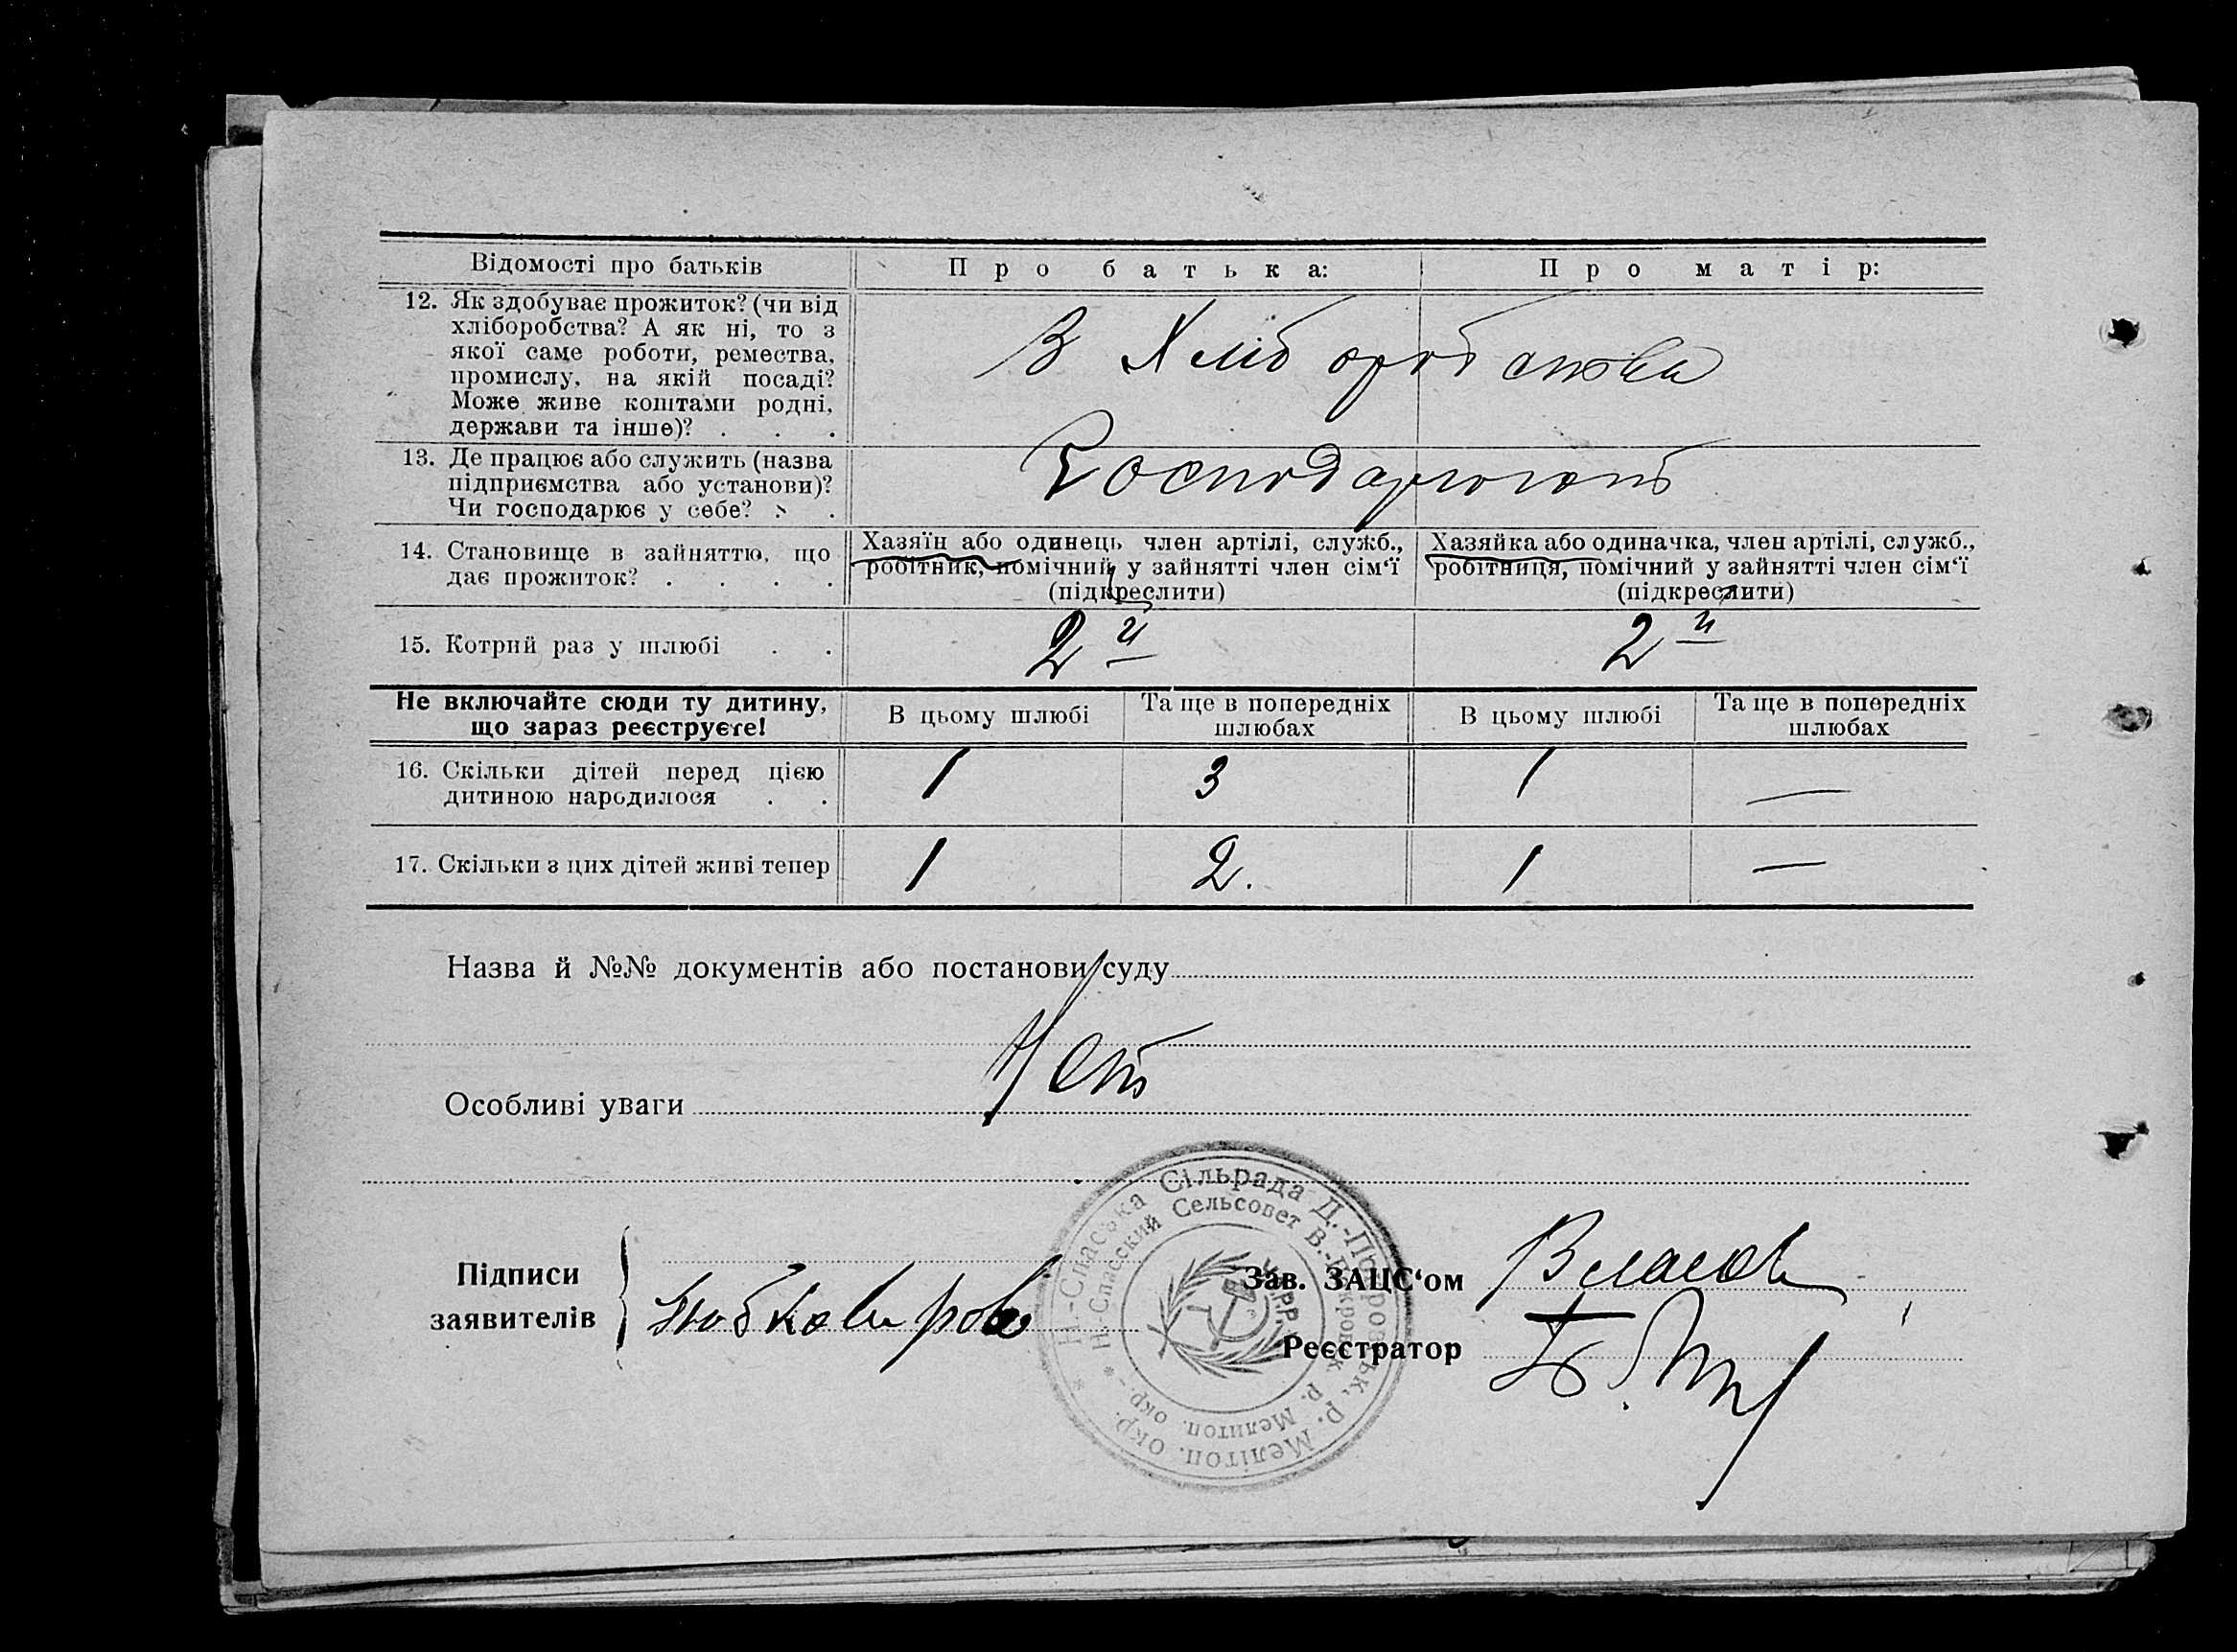 Відомості про батьків
Про батька:
Про матір:
12. Як здобуває прожиток? (чи від
хліборобства? А як ні, то з
якої саме роботи, ремества,
промислу, на якій посаді?
Може живе коштами родні,
держави та інше)? . . .
В Хліборобства
13. Де працює або служить (назва
підприємства або установи)?
Чи господарює у себе? . .
Господарюють
14. Становище в зайняттю, що
дає прожиток? . . . .
Хазяїн або одинець член артілі, служб.,
робітник, помічний у зайнятті член сім‘ї
(підкреслити)
Хазяйка або одиначка, член артілі, служб.,
робітниця, помічний у зайнятті член сім‘ї
(підкреслити)
15. Котрий раз у шлюбі . .
2й
2й
Не включайте сюди ту дитину,
що зараз реєструєте!
В цьому шлюбі
Та ще в попередніх
шлюбах
В цьому шлюбі
Та ще в попередніх
шлюбах
16. Скільки дітей перед цією
дитиною народилося . .
1
3
1
—
17. Скільки з цих дітей живі тепер
1
2.
1
—
Назва й №№ документів або постанови суду
Нет
Особливі уваги
Н.-Спаська Сільрада Д.-Покровськ. р. Мелітоп. окр.
Н.-Спасский Сельсовет В.-Покровск. р. Мелитоп. окр.
У.С.Р.Р.
Підписи
заявителів
Зав. ЗАЦС‘ом
Власов
Реєстратор